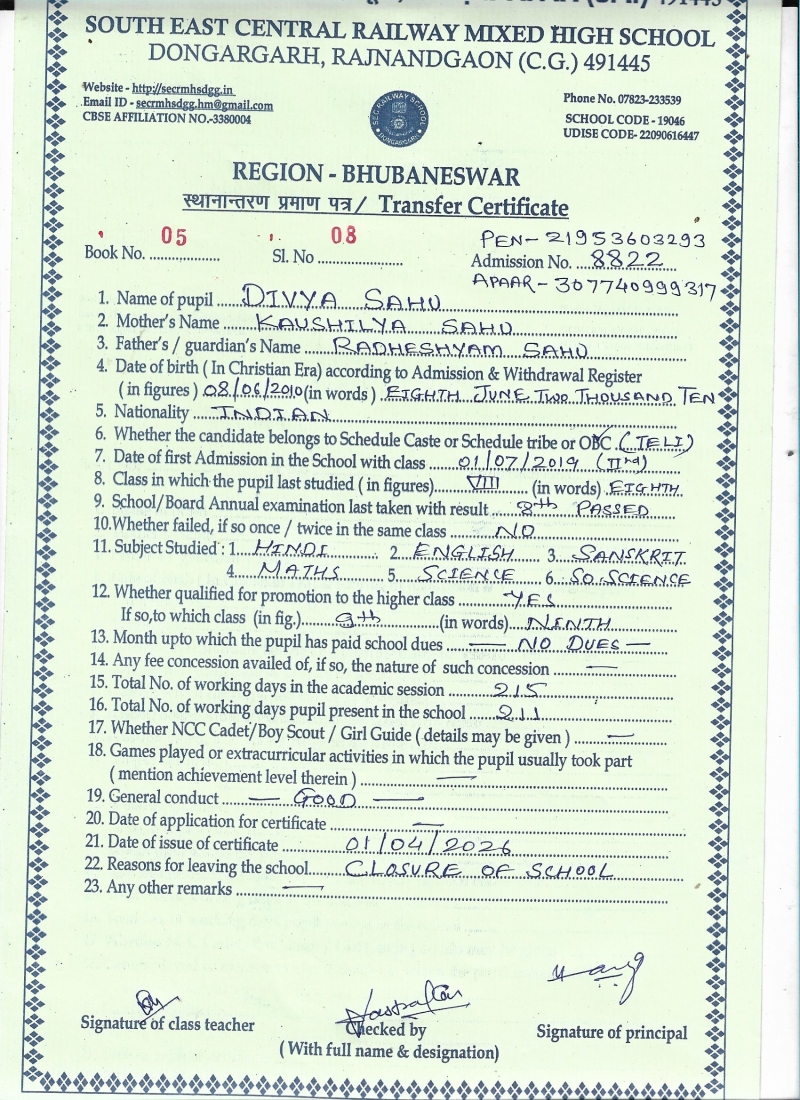 SOUTH EAST CENTRAL RAILWAY MIXED HIGH SCHOOL
DONGARGARH, RAJNANDGAON (C.G.) 491445
Website - http://secrmhsdgg.in
Email ID - secrmhsdgg.hm@gmail.com
CBSE AFFILIATION NO.-3380004
Phone No. 07823-233539
SCHOOL CODE - 19046
UDISE CODE- 22090616447
REGION - BHUBANESWAR
स्थानान्तरण प्रमाण पत्र / Transfer Certificate
Book No. 05 Sl. No 08
PEN- 21953603293
Admission No. 8822
APAAR- 307740999317
1. Name of pupil DIVYA SAHU
2. Mother's Name KAUSHILYA SAHU
3. Father's / guardian's Name RADHESHYAM SAHU
4. Date of birth ( In Christian Era) according to Admission & Withdrawal Register
(in figures ) 08/06/2010 (in words ) EIGHTH JUNE TWO THOUSAND TEN
5. Nationality INDIAN
6. Whether the candidate belongs to Schedule Caste or Schedule tribe or OBC (TELI)
7. Date of first Admission in the School with class 01/07/2019 (IInd)
8. Class in which the pupil last studied ( in figures) VIII (in words) EIGHTH
9. School/Board Annual examination last taken with result 8th PASSED
10.Whether failed, if so once / twice in the same class NO
11. Subject Studied : 1. HINDI 2. ENGLISH 3. SANSKRIT
4. MATHS 5. SCIENCE 6. SO. SCIENCE
12. Whether qualified for promotion to the higher class YES
If so,to which class (in fig.) 9th (in words) NINTH
13. Month upto which the pupil has paid school dues — NO DUES —
14. Any fee concession availed of, if so, the nature of such concession —
15. Total No. of working days in the academic session 215
16. Total No. of working days pupil present in the school 211
17. Whether NCC Cadet/Boy Scout / Girl Guide ( details may be given ) —
18. Games played or extracurricular activities in which the pupil usually took part
( mention achievement level therein ) —
19. General conduct — GOOD —
20. Date of application for certificate —
21. Date of issue of certificate 01/04/2026
22. Reasons for leaving the school CLOSURE OF SCHOOL
23. Any other remarks —
Signature of class teacher
Checked by
( With full name & designation)
Signature of principal